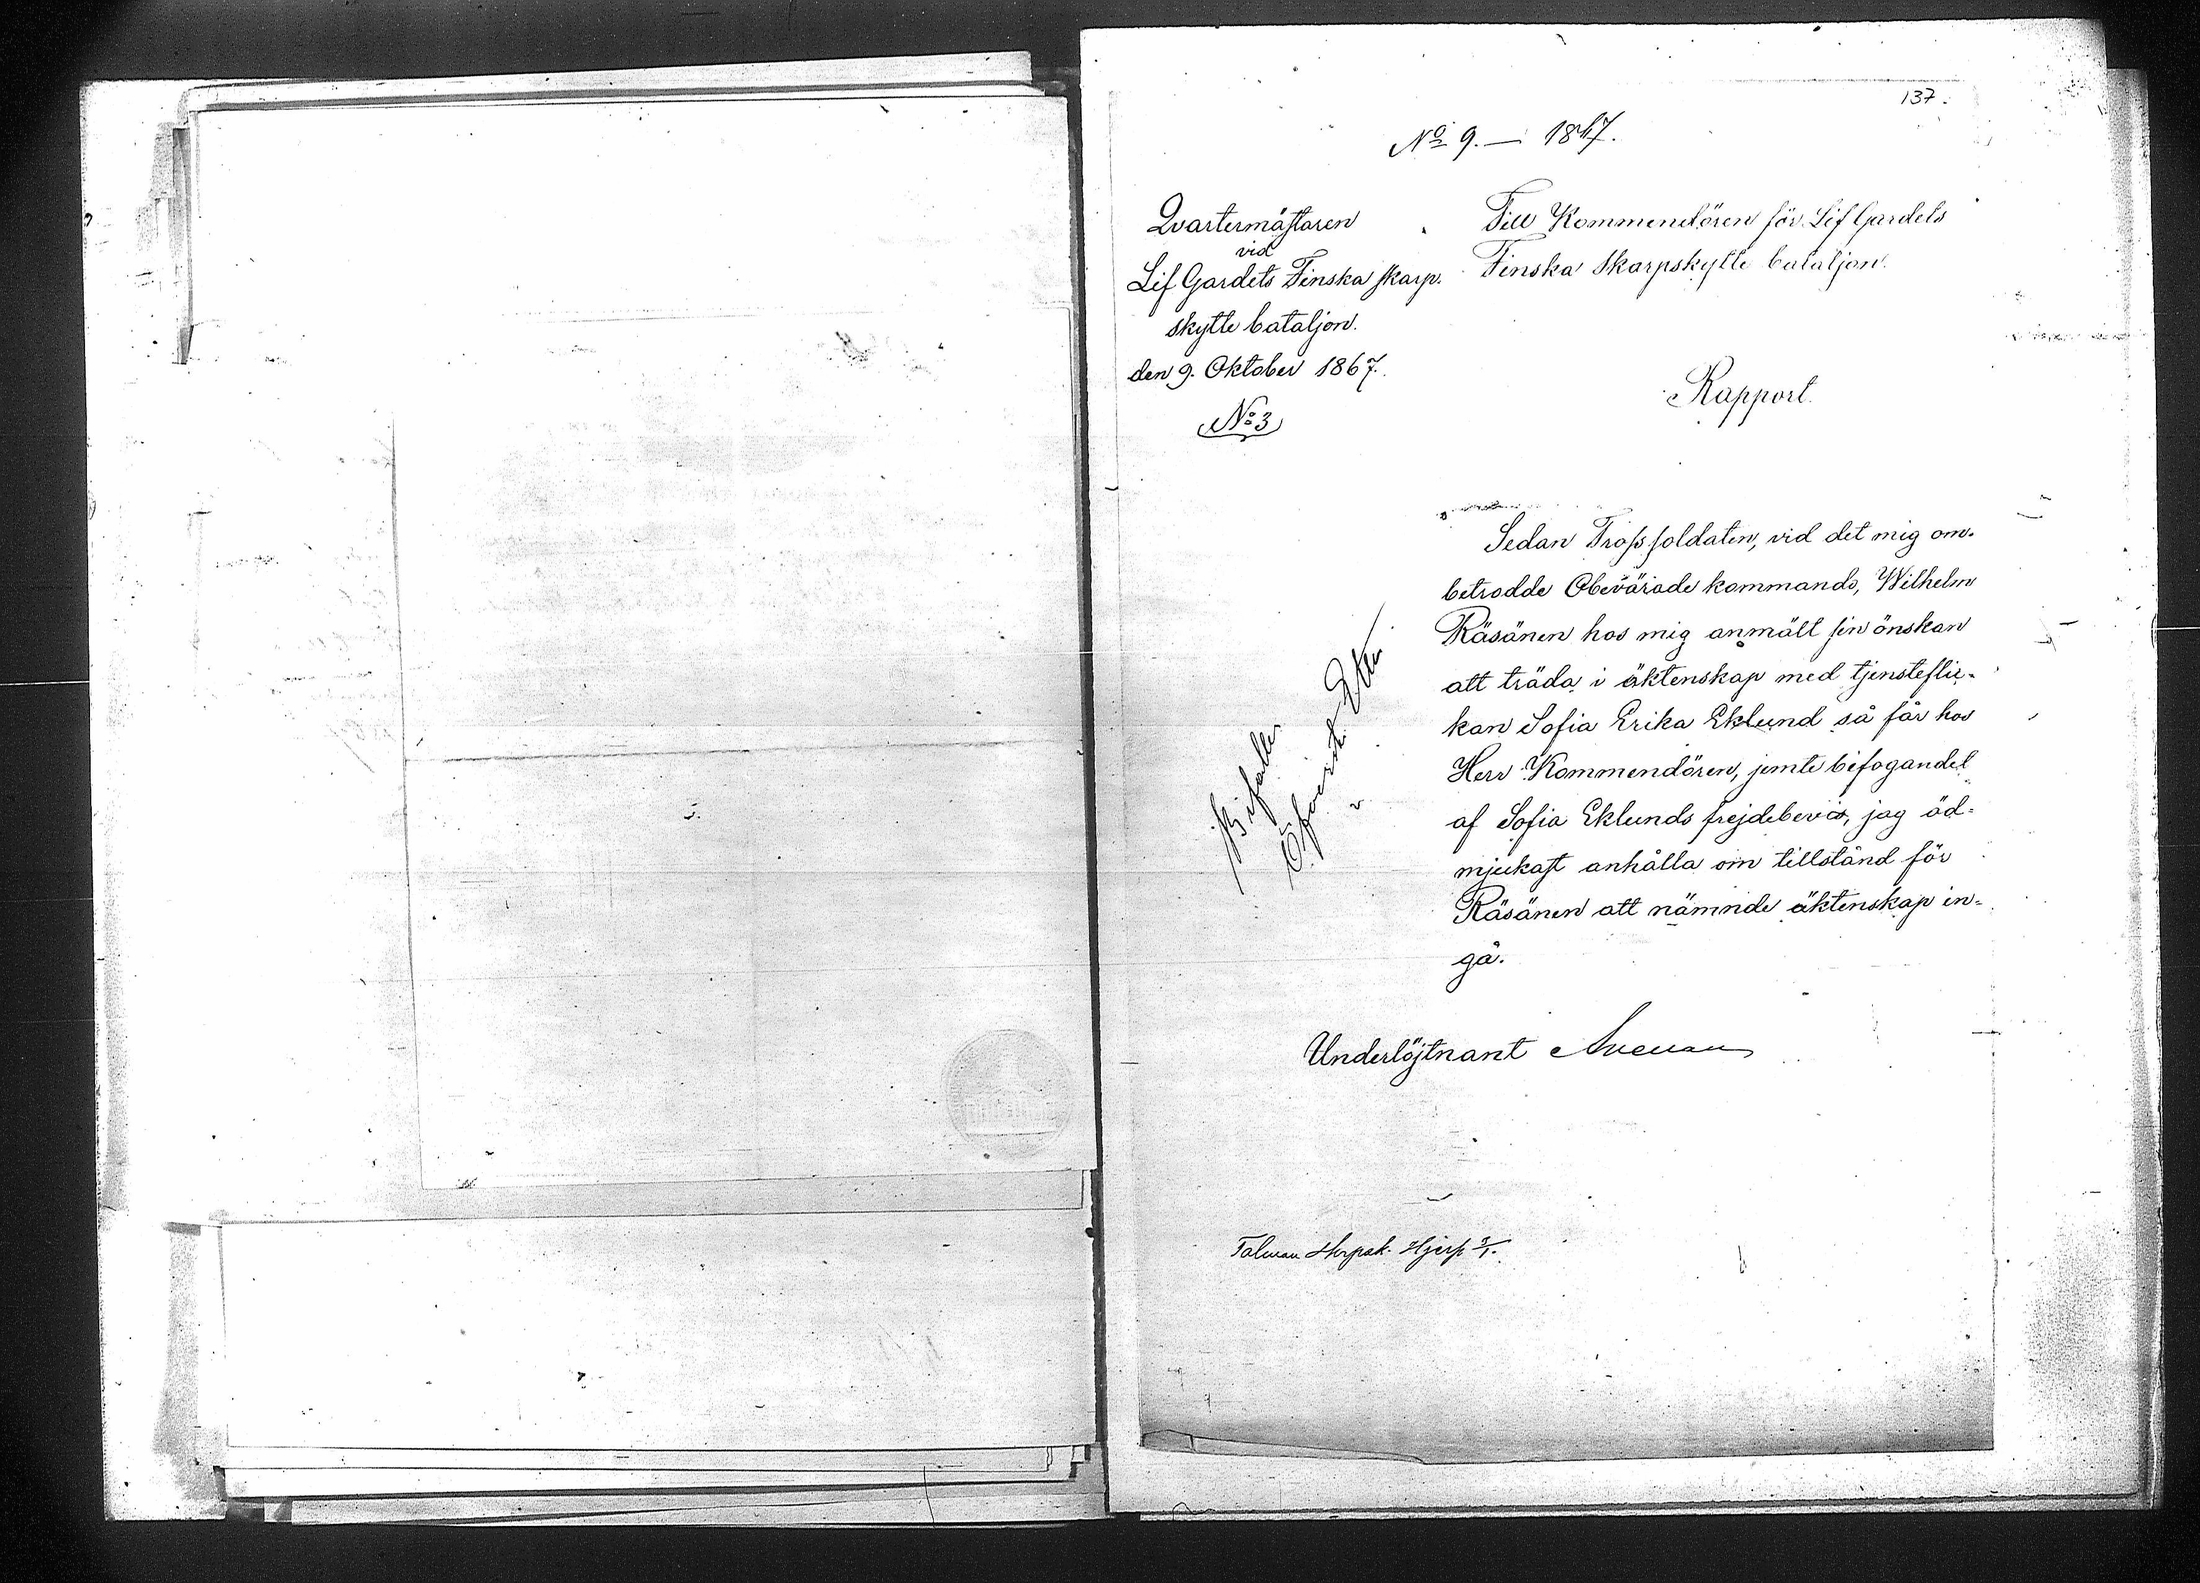 137.
No 9. — 1867.
Qvartermästaren
vid
Lif Gardets Finska skarp-
skytte bataljon.
den 9. Oktober 1867.
No 3
Till Kommendören för Lif Gardets
Finska Skarpskytte bataljon.
Rapport.
Sedan Trosssoldaten, vid det mig om-
betrodde Obevärade kommando, Wilhelm
Räsänen hos mig anmält sin önskan
att träda i äktenskap med tjensteflic-
kan Sofia Erika Eklund så får hos
Herr Kommendören, jemte bifogandet
af Sofia Eklunds frejdebevis, jag öd-
mjukast anhålla om tillstånd för
Räsänen att nämnde äktenskap in-
gå.
Bifalles
Öfverst
Underlöjtnant
Talman Skrpsk. Hjerp